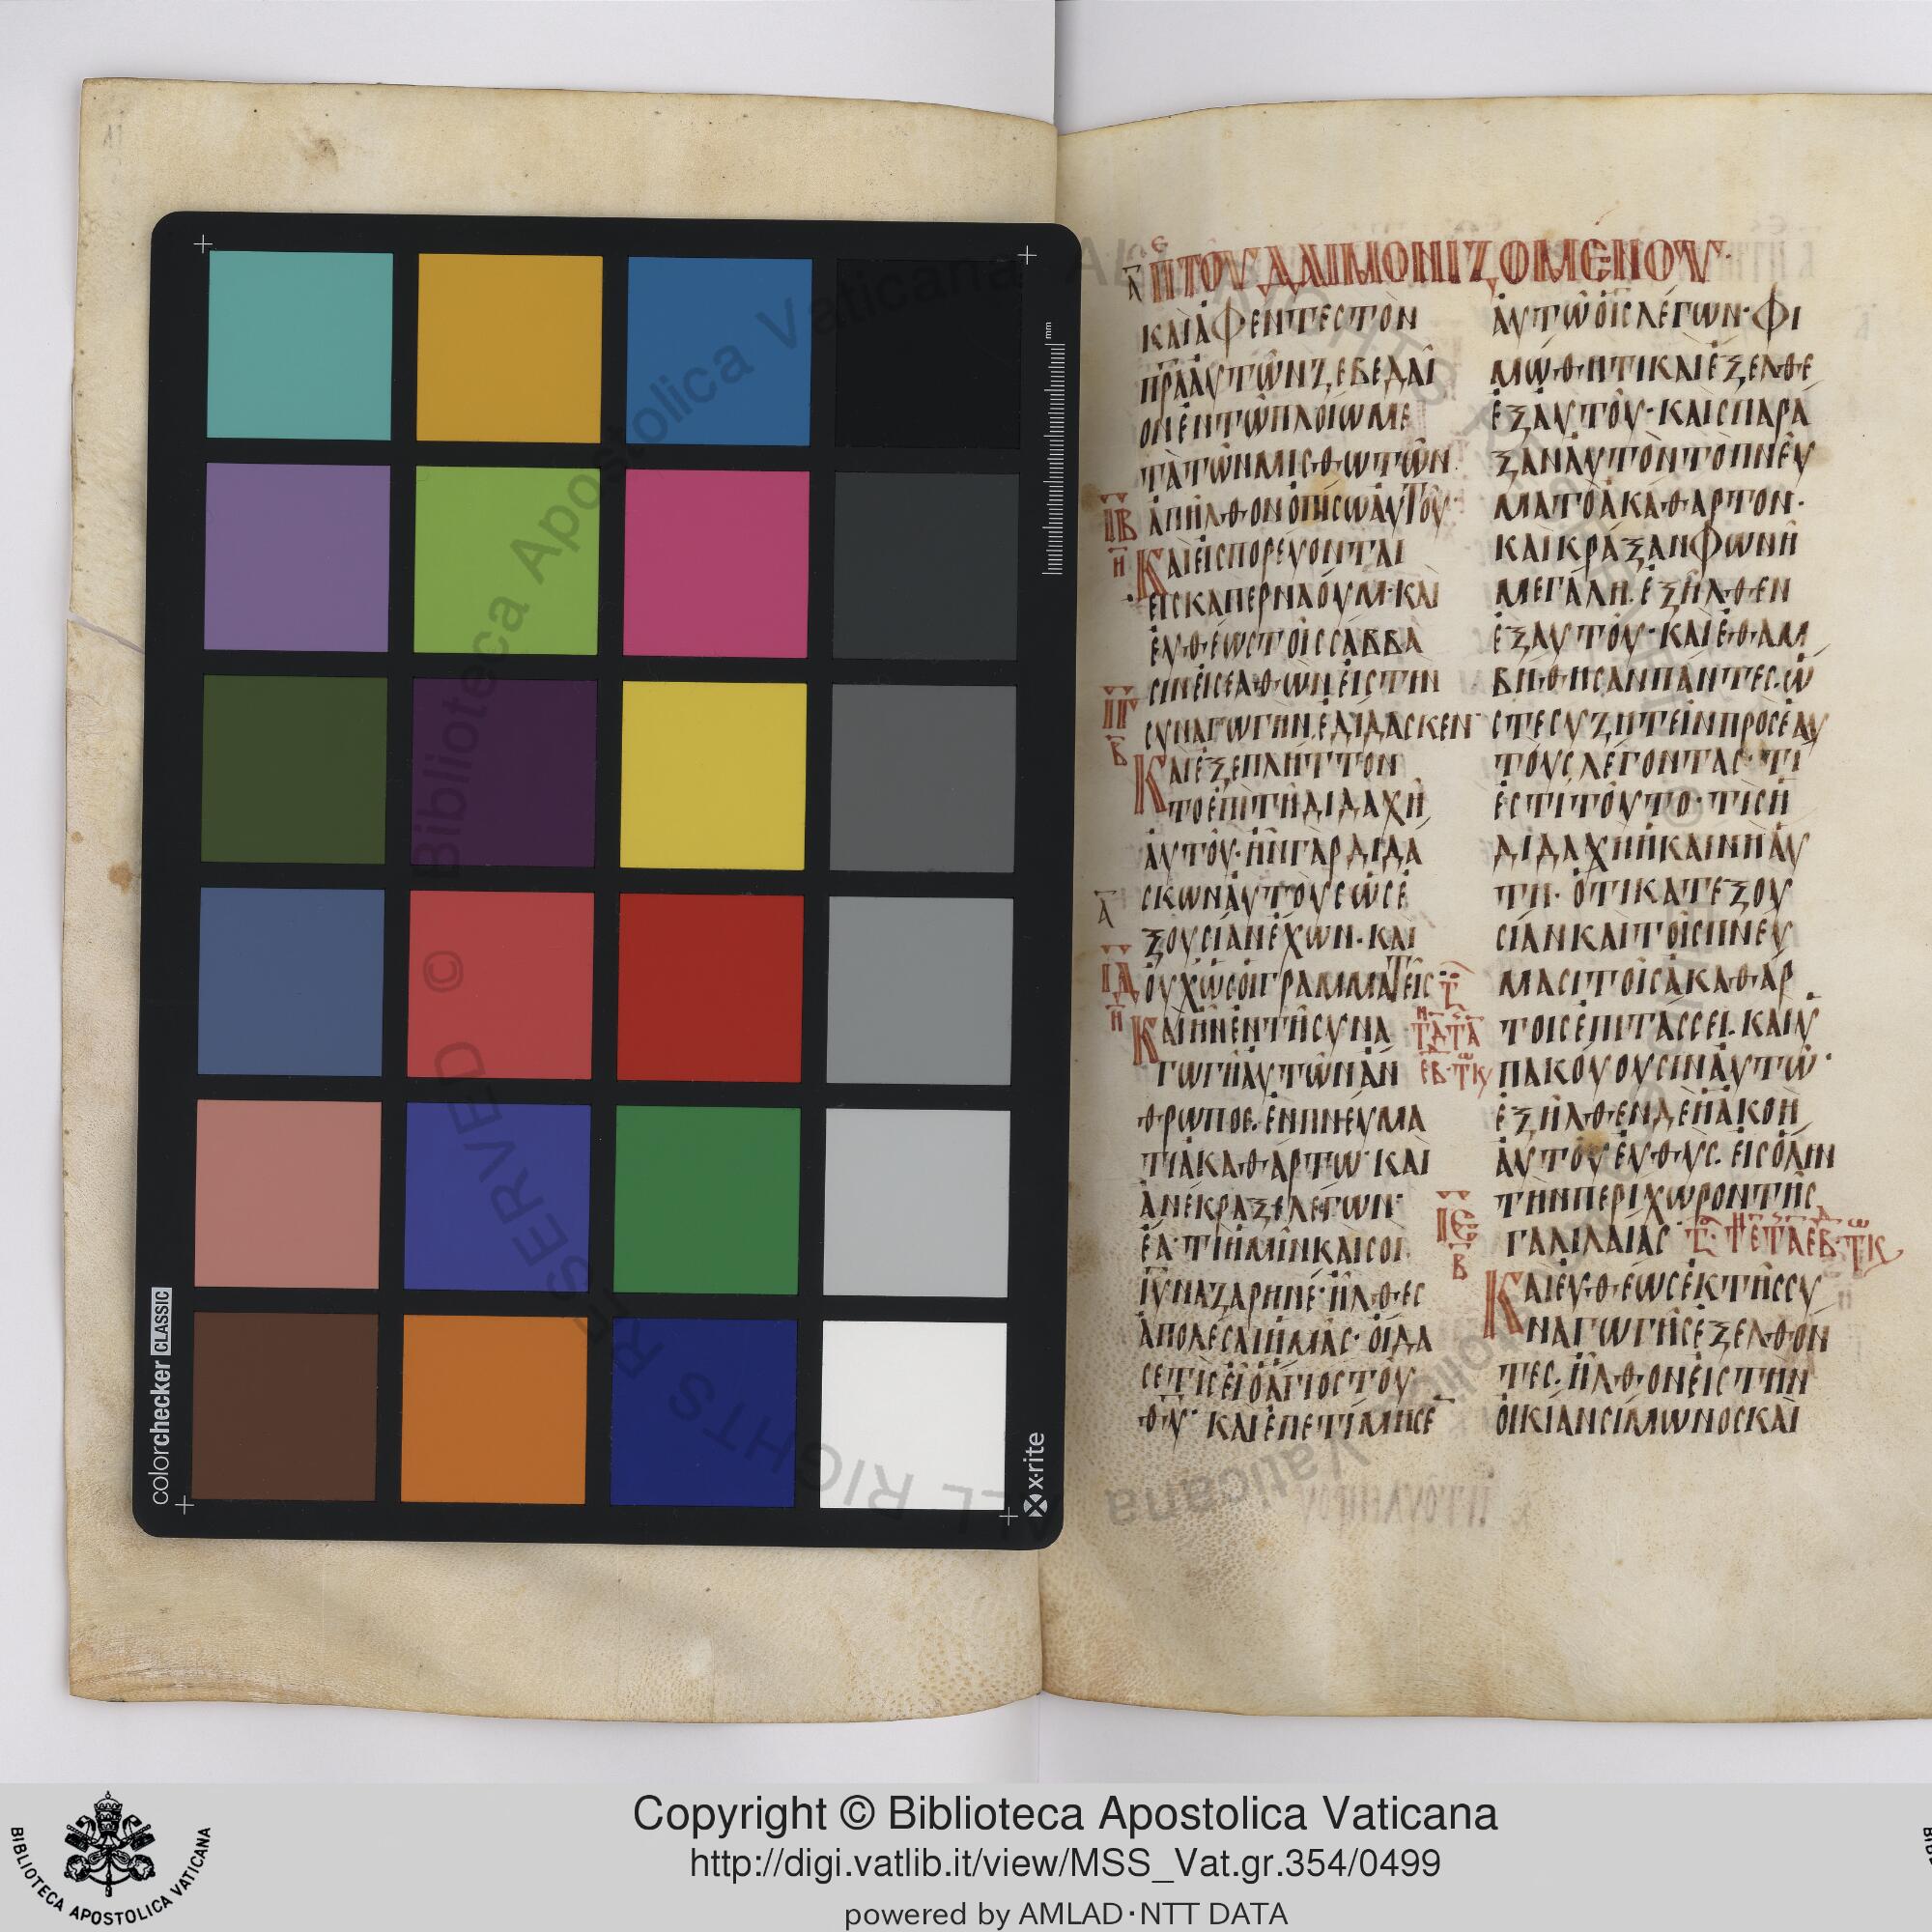 Α ΠΕ ΤΟΥ ΔΑΙΜΟΝΙΖΟΜΕΝΟΥ·
ΚΑΙ ΑΦΕΝΤΕΣ ΤΟΝ
ΠΡΑ ΑΥΤΩΝ ΖΕΒΕΔΑΙ
ΟΝ ΕΝ ΤΩ ΠΛΟΙΩ ΜΕ
ΤΑ ΤΩΝ ΜΙΣΘΩΤΩΝ
ΑΠΗΛΘΟΝ ΟΠΙΣΩ ΑΥΤΟΥ·
ΙΒ
Η
ΚΑΙ ΕΙΣΠΟΡΕΥΟΝΤΑΙ
ΕΙΣ ΚΑΠΕΡΝΑΟΥΜ· ΚΑΙ
ΕΥΘΕΩΣ ΤΟΙΣ ΣΑΒΒΑ
ΣΙΝ ΕΙΣΕΛΘΩΝ ΕΙΣ ΤΗΝ
ΣΥΝΑΓΩΓΗΝ. ΕΔΙΔΑΣΚΕΝ·
ΙΓ
Β
ΚΑΙ ΕΞΕΠΛΗΤΤΟΝ
ΤΟ ΕΠΙ ΤΗ ΔΙΔΑΧΗ
ΑΥΤΟΥ· ΗΝ ΓΑΡ ΔΙΔΑ
ΣΚΩΝ ΑΥΤΟΥΣ ΩΣ Ε
ΞΟΥΣΙΑΝ ΕΧΩΝ· ΚΑΙ
ΟΥΧ ΩΣ ΟΙ ΓΡΑΜΜΑΤΕΙΣ
Α
ΙΔ
Η
ΚΑΙ ΗΝ ΕΝ ΤΗ ΣΥΝΑ
ΓΩΓΗ ΑΥΤΩΝ ΑΝ
ΘΡΩΠΟΣ. ΕΝ ΠΝΕΥΜΑ
ΤΙ ΑΚΑΘΑΡΤΩ· ΚΑΙ
ΑΝΕΚΡΑΞΕ ΛΕΓΩΝ·
ΕΑ· ΤΙ ΗΜΙΝ ΚΑΙ ΣΟΙ
ΙΥ ΝΑΖΑΡΗΝΕ· ΗΛΘΕΣ
ΑΠΟΛΕΣΑΙ ΗΜΑΣ· ΟΙΔΑ
ΣΕ ΤΙΣ ΕΙ Ο ΑΓΙΟΣ ΤΟΥ
ΘΥ· ΚΑΙ ΕΠΕΤΙΜΗΣΕ
ΑΥΤΩ Ο ΙΣ ΛΕΓΩΝ· ΦΙ
ΜΩΘΗΤΙ ΚΑΙ ΕΞΕΛΘΕ
ΕΞ ΑΥΤΟΥ· ΚΑΙ ΣΠΑΡΑ
ΞΑΝ ΑΥΤΟΝ ΤΟ ΠΝΕΥ
ΜΑ ΤΟ ΑΚΑΘΑΡΤΟΝ·
ΚΑΙ ΚΡΑΞΑΝ ΦΩΝΗ
ΜΕΓΑΛΗ. ΕΞΗΛΘΕΝ
ΕΞ ΑΥΤΟΥ· ΚΑΙ ΕΘΑΜ
ΒΗΘΗΣΑΝ ΠΑΝΤΕΣ. Ω
ΣΤΕ ΣΥΖΗΤΕΙΝ ΠΡΟΣ ΕΑΥ
ΤΟΥΣ ΛΕΓΟΝΤΑΣ· ΤΙ
ΕΣΤΙ ΤΟΥΤΟ· ΤΙΣ Η
ΔΙΔΑΧΗ Η ΚΑΙΝΗ ΑΥ
ΤΗ· ΟΤΙ ΚΑΤ ΕΞΟΥ
ΣΙΑΝ ΚΑΙ ΤΟΙΣ ΠΝΕΥ
ΜΑΣΙ ΤΟΙΣ ΑΚΑΘΑΡ
ΤΟΙΣ ΕΠΙΤΑΣΣΕΙ. ΚΑΙ Υ
ΠΑΚΟΥΟΥΣΙΝ ΑΥΤΩ·
ΕΞΗΛΘΕΝ ΔΕ Η ΑΚΟΗ
ΑΥΤΟΥ ΕΥΘΥΣ. ΕΙΣ ΟΛΗΝ
ΤΗΝ ΠΕΡΙΧΩΡΟΝ ΤΗΣ
ΓΑΛΙΛΑΙΑΣ
ΙΕ
Β
ΚΑΙ ΕΥΘΕΩΣ ΕΚ ΤΗΣ ΣΥ
ΝΑΓΩΓΗΣ ΕΞΕΛΘΟΝ
ΤΕΣ. ΗΛΘΟΝ ΕΙΣ ΤΗΝ
ΟΙΚΙΑΝ ΣΙΜΩΝΟΣ ΚΑΙ
mm
colorchecker CLASSIC
x·rite
Biblioteca Apostolica Vaticana ALL RIGHTS RESERVED ©
BIBLIOTECA APOSTOLICA VATICANA
Copyright © Biblioteca Apostolica Vaticana
http://digi.vatlib.it/view/MSS_Vat.gr.354/0499
powered by AMLAD·NTT DATA